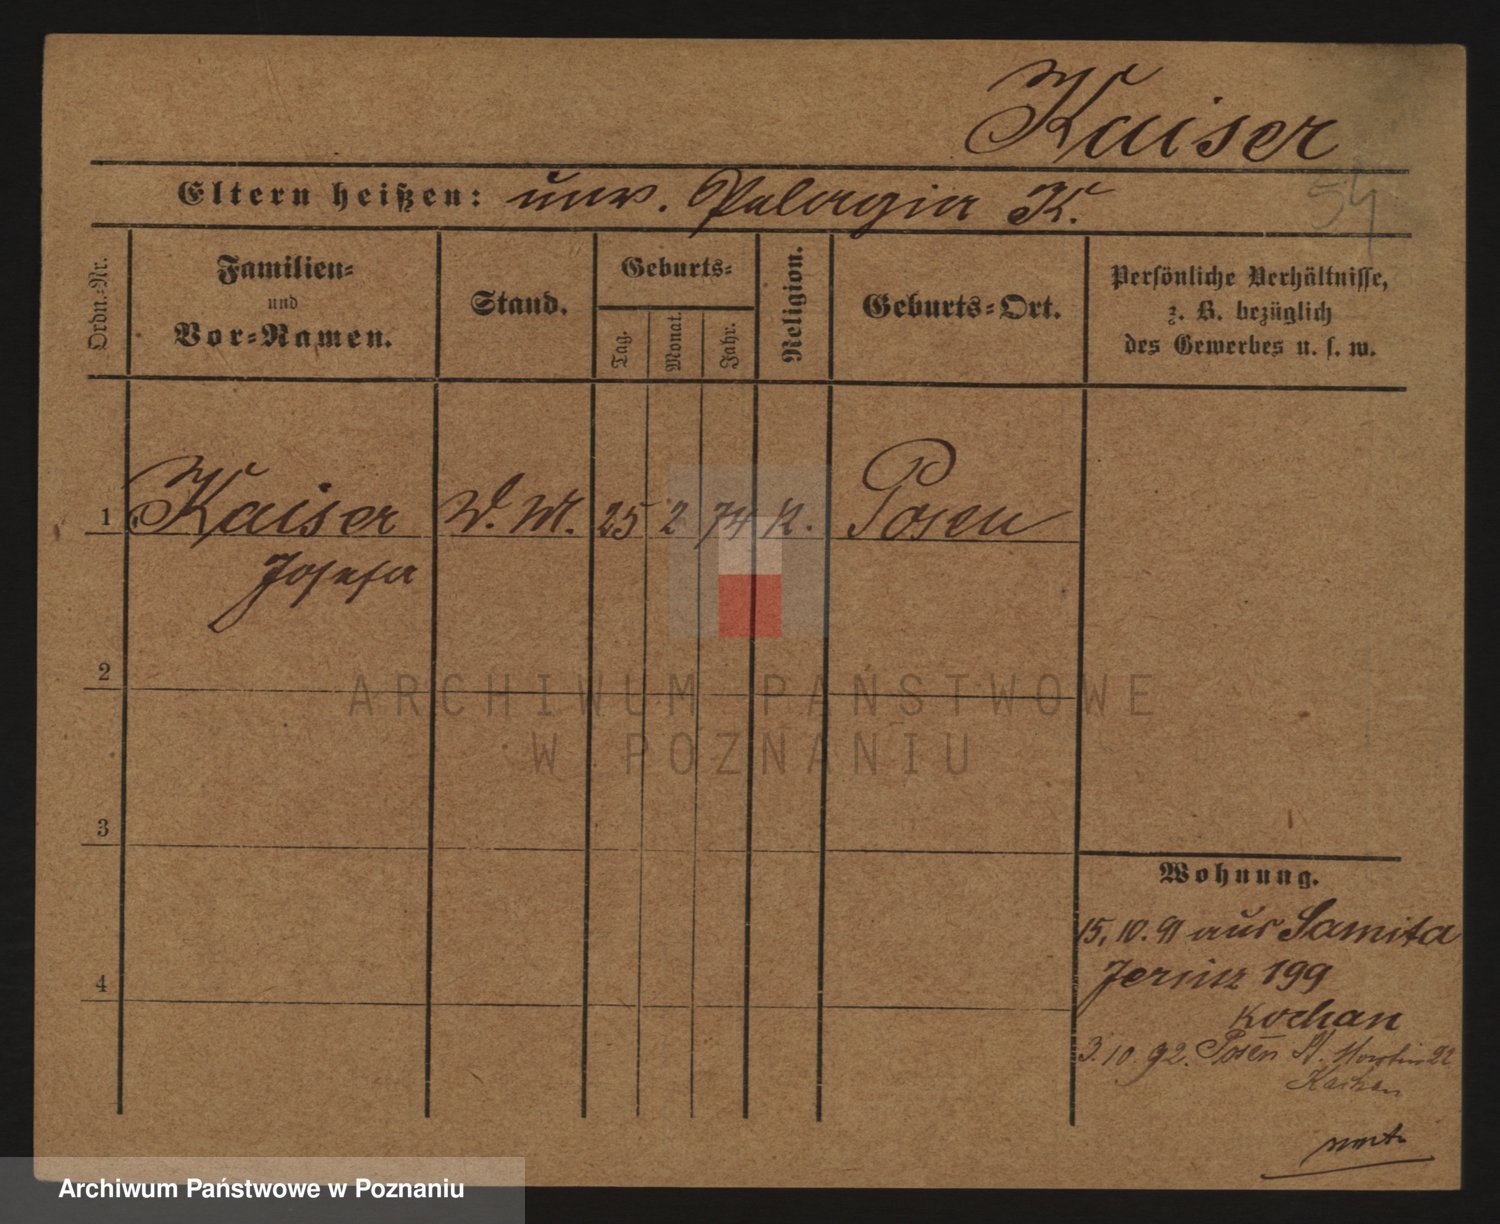 Kaiser
54
Eltern heißen: unv. Pelagia K.
Ordn.-Nr.
Familien-
und
Vor-Namen.
Stand.
Geburts-
Tag.
Monat.
Jahr.
Religion.
Geburts-Ort.
Persönliche Verhältnisse,
z. B. bezüglich
des Gewerbes u. s. w.
1 Kaiser D. M. 25 2 74 K. Posen
Josefa
2
ARCHIWUM PAŃSTWOWE
W POZNANIU
3
Wohnung.
15. 10. 91 aus Samita
4
Jersitz 199
Kochan
3. 10. 92. Posen St. Martin 22
Kochan
Archiwum Państwowe w Poznaniu